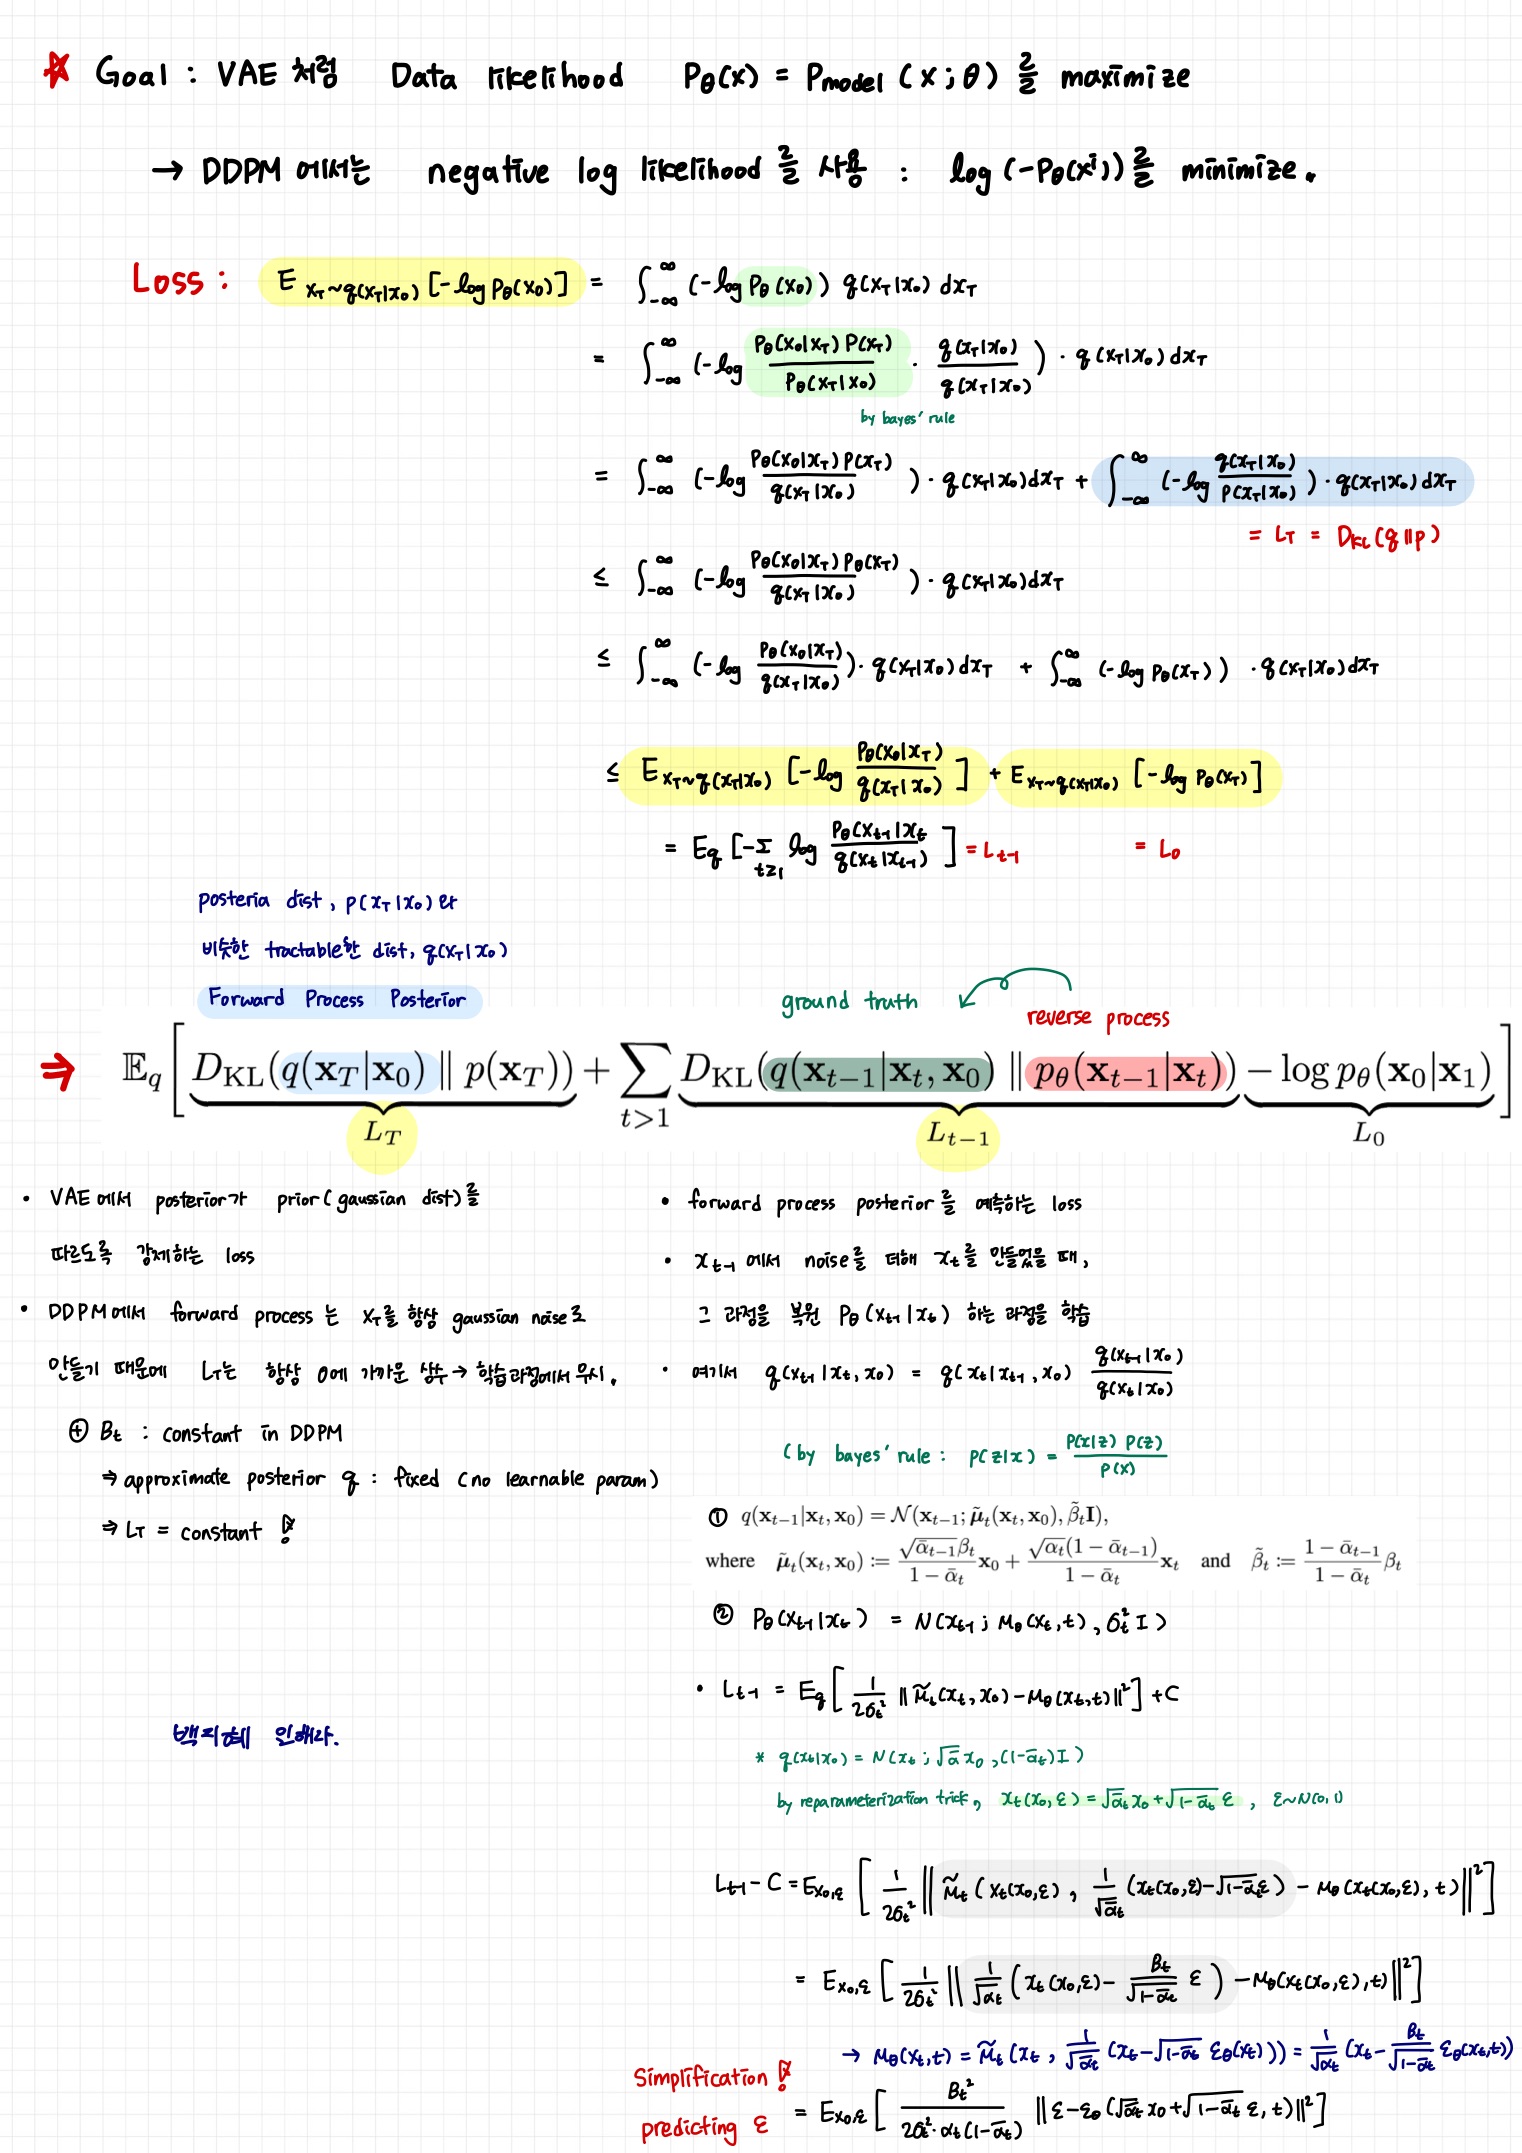 ☆ Goal : VAE 처럼 Data likelihood Pθ(x) = Pmodel (x ; θ) 를 maximize
→ DDPM 에서는 negative log likelihood 를 사용 : log (-Pθ(xⁱ)) 를 minimize.
Loss : E x_T~q(x_T|x_0) [-log Pθ(x_0)] = ∫_{-∞}^{∞} (-log Pθ (x_0)) q(x_T|x_0) dx_T
= ∫_{-∞}^{∞} (-log Pθ(x_0|x_T) P(x_T) / Pθ(x_T|x_0) · q(x_T|x_0) / q(x_T|x_0) ) · q(x_T|x_0) dx_T
by bayes' rule
= ∫_{-∞}^{∞} (-log Pθ(x_0|x_T) P(x_T) / q(x_T|x_0) ) · q(x_T|x_0) dx_T + ∫_{-∞}^{∞} (-log q(x_T|x_0) / P(x_T|x_0) ) · q(x_T|x_0) dx_T
= L_T = D_KL (q || p)
≤ ∫_{-∞}^{∞} (-log Pθ(x_0|x_T) Pθ(x_T) / q(x_T|x_0) ) · q(x_T|x_0) dx_T
≤ ∫_{-∞}^{∞} (-log Pθ(x_0|x_T) / q(x_T|x_0) ) · q(x_T|x_0) dx_T + ∫_{-∞}^{∞} (-log Pθ(x_T) ) · q(x_T|x_0) dx_T
≤ E x_T~q(x_T|x_0) [-log Pθ(x_0|x_T) / q(x_T|x_0) ] + E x_T~q(x_T|x_0) [-log Pθ(x_T)]
= E_q [-Σ_{t≥1} log Pθ(x_{t-1}|x_t / q(x_t|x_{t-1}) ] = L_{t-1} = L_0
posteria dist, p(x_T|x_0) 와
비슷한 tractable한 dist, q(x_T|x_0)
Forward Process Posterior
ground truth
reverse process
⇒ 𝔼_q [ D_KL(q(x_T|x_0) ∥ p(x_T)) + Σ_{t>1} D_KL(q(x_{t-1}|x_t, x_0) ∥ p_θ(x_{t-1}|x_t)) − log p_θ(x_0|x_1) ]
L_T L_{t-1} L_0
• VAE에서 posterior가 prior(gaussian dist)를
따르도록 강제하는 loss
• DDPM에서 forward process 는 x_T를 항상 gaussian noise로
만들기 때문에 L_T는 항상 0에 가까운 상수 → 학습과정에서 무시.
⊕ B_t : constant in DDPM
⇒ approximate posterior q : fixed (no learnable param)
⇒ L_T = constant !
• forward process posterior를 예측하는 loss
• x_{t-1} 에서 noise를 더해 x_t를 만들었을 때,
그 과정을 복원 Pθ(x_{t-1}|x_t) 하는 과정을 학습
• 여기서 q(x_{t-1}|x_t, x_0) = q(x_t|x_{t-1}, x_0) q(x_{t-1}|x_0) / q(x_t|x_0)
(by bayes' rule : P(z|x) = P(x|z) P(z) / P(x)
① q(x_{t-1}|x_t, x_0) = 𝒩(x_{t-1}; μ̃_t(x_t, x_0), β̃_t I),
where μ̃_t(x_t, x_0) := √ᾱ_{t-1} β_t / (1 − ᾱ_t) x_0 + √α_t (1 − ᾱ_{t-1}) / (1 − ᾱ_t) x_t and β̃_t := (1 − ᾱ_{t-1}) / (1 − ᾱ_t) β_t
② Pθ(x_{t-1}|x_t) = N(x_{t-1} ; μθ(x_t, t), σ_t² I)
• L_{t-1} = E_q [ 1 / 2σ_t² ‖ μ̃_t(x_t, x_0) - μθ(x_t, t) ‖² ] + C
백지혜 인해라.
* q(x_t|x_0) = N(x_t ; √ᾱ x_0 , (1-ᾱ_t) I )
by reparameterization trick, x_t(x_0, ε) = √ᾱ_t x_0 + √(1-ᾱ_t) ε , ε~N(0, 1)
L_{t-1} - C = E_{x_0, ε} [ 1 / 2σ_t² ‖ μ̃_t ( x_t(x_0, ε) , 1 / √ᾱ_t (x_t(x_0, ε) - √(1-ᾱ_t) ε ) - μθ (x_t(x_0, ε), t) ‖² ]
= E_{x_0, ε} [ 1 / 2σ_t² ‖ 1 / √α_t ( x_t(x_0, ε) - B_t / √(1-ᾱ_t) ε ) - μθ(x_t(x_0, ε), t) ‖² ]
→ μθ(x_t, t) = μ̃_t (x_t , 1 / √ᾱ_t (x_t - √(1-ᾱ_t) εθ(x_t) )) = 1 / √α_t (x_t - B_t / √(1-ᾱ_t) εθ(x_t, t))
Simplification !
predicting ε
= E_{x_0, ε} [ B_t² / 2σ_t² · α_t (1-ᾱ_t) ‖ ε - εθ (√ᾱ_t x_0 + √(1-ᾱ_t) ε, t) ‖² ]